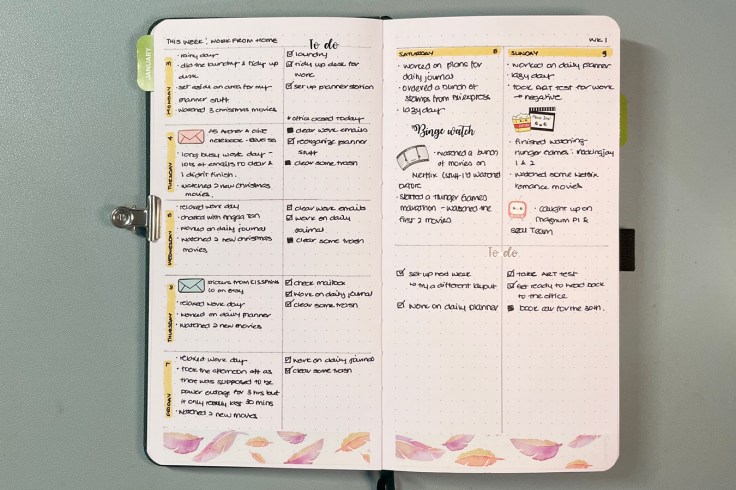 THIS WEEK: WORK FROM HOME
To do
JANUARY
3
MONDAY
• rainy day
• did the laundry & tidy up
desk
• set aside an area for my
planner stuff
• watched 3 christmas movies
laundry
tidy up desk for
work
set up planner station
4
TUESDAY
notebook
• long busy work day –
lots of emails to clear &
I didn't finish.
• watched 2 new christmas
movies.
* office closed today
clear work emails
reorganize planner
stuff
clear some trash
5
WEDNESDAY
• relaxed work day
• chatted with
• worked on daily journal
• watched 2 new christmas
movies
clear work emails
work on daily
journal
clear some trash
6
THURSDAY
stickers from
on etsy
• relaxed work day
• worked on daily planner
• watched 2 new movies
check mailbox
work on daily journal
clear some trash
7
FRIDAY
• relaxed work day
• took the afternoon off as
there was supposed to be
power outage for 3 hrs but
it only really last 30 mins
• watched 2 new movies
work on daily journal
clear some trash
WK 1
SATURDAY 8
• worked on plans for
daily journal
• ordered a bunch of
stamps from aliexpress
• lazy day
Binge watch
• watched a bunch
of movies on
Netflix (stuff I'd watched
before
• started a Hunger Games
marathon - watched the
first 2 movies
SUNDAY 9
• worked on daily planner
• lazy day
• took ART test for work
→ negative
• finished watching
hunger games: mockingjay
1 & 2
• watched some Netflix
romance movies
• caught up on
magnum PI &
Seal Team
To do
set up next week
↳ try a different layout
work on daily planner
take ART test
get ready to head back
to the office
book car for the 30th.